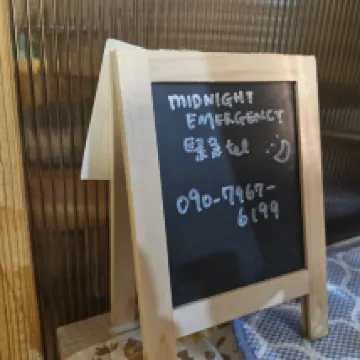 MIDNIGHT
EMERGENCY
tel
090-7967-
6199